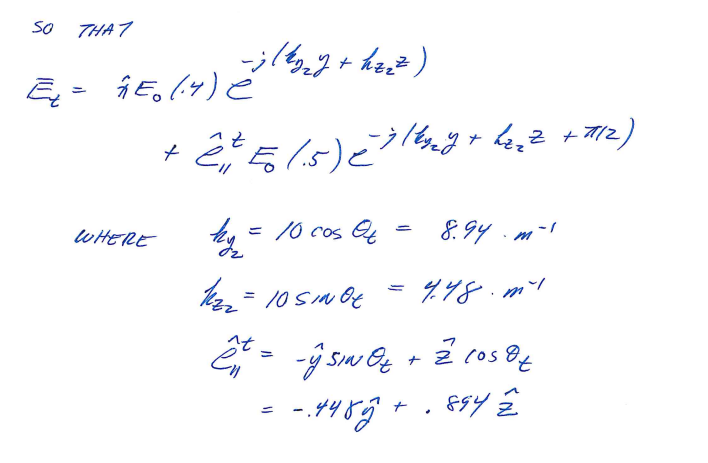 SO THAT
Ē_t = x̂ E₀ (.4) e^{-j(k_{y₂} y + k_{z₂} z)}
+ ê_{∥}^{t} E₀ (.5) e^{-j(k_{y₂} y + k_{z₂} z + π/2)}
WHERE k_{y₂} = 10 cos θ_t = 8.94 . m⁻¹
k_{z₂} = 10 SIN θ_t = 4.48 . m⁻¹
ê_{∥}^{t} = -ŷ SIN θ_t + ẑ cos θ_t
= -.448 ŷ + .894 ẑ